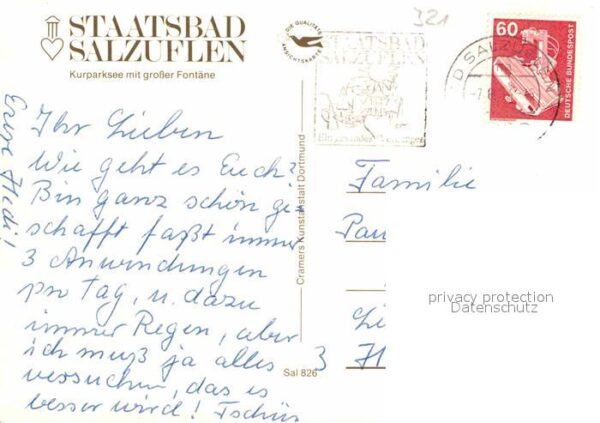 STAATSBAD
SALZUFLEN
Kurparksee mit großer Fontäne
DIE QUALITÄTS
ANSICHTSKARTE
321
STAATSBAD
SALZUFLEN
60
DEUTSCHE BUNDESPOST
Ihr Lieben
Wie geht es Euch?
Bin ganz schön ge-
schafft faßt immer
3 Anwendungen
pro Tag, u. dazu
immer Regen, aber
ich muß ja alles
versuchen, das es
besser wird! Tschüs
Eure Hedi!
Cramers Kunstanstalt Dortmund
Sal 826
Familie
Pau
Li
3
H
privacy protection
Datenschutz